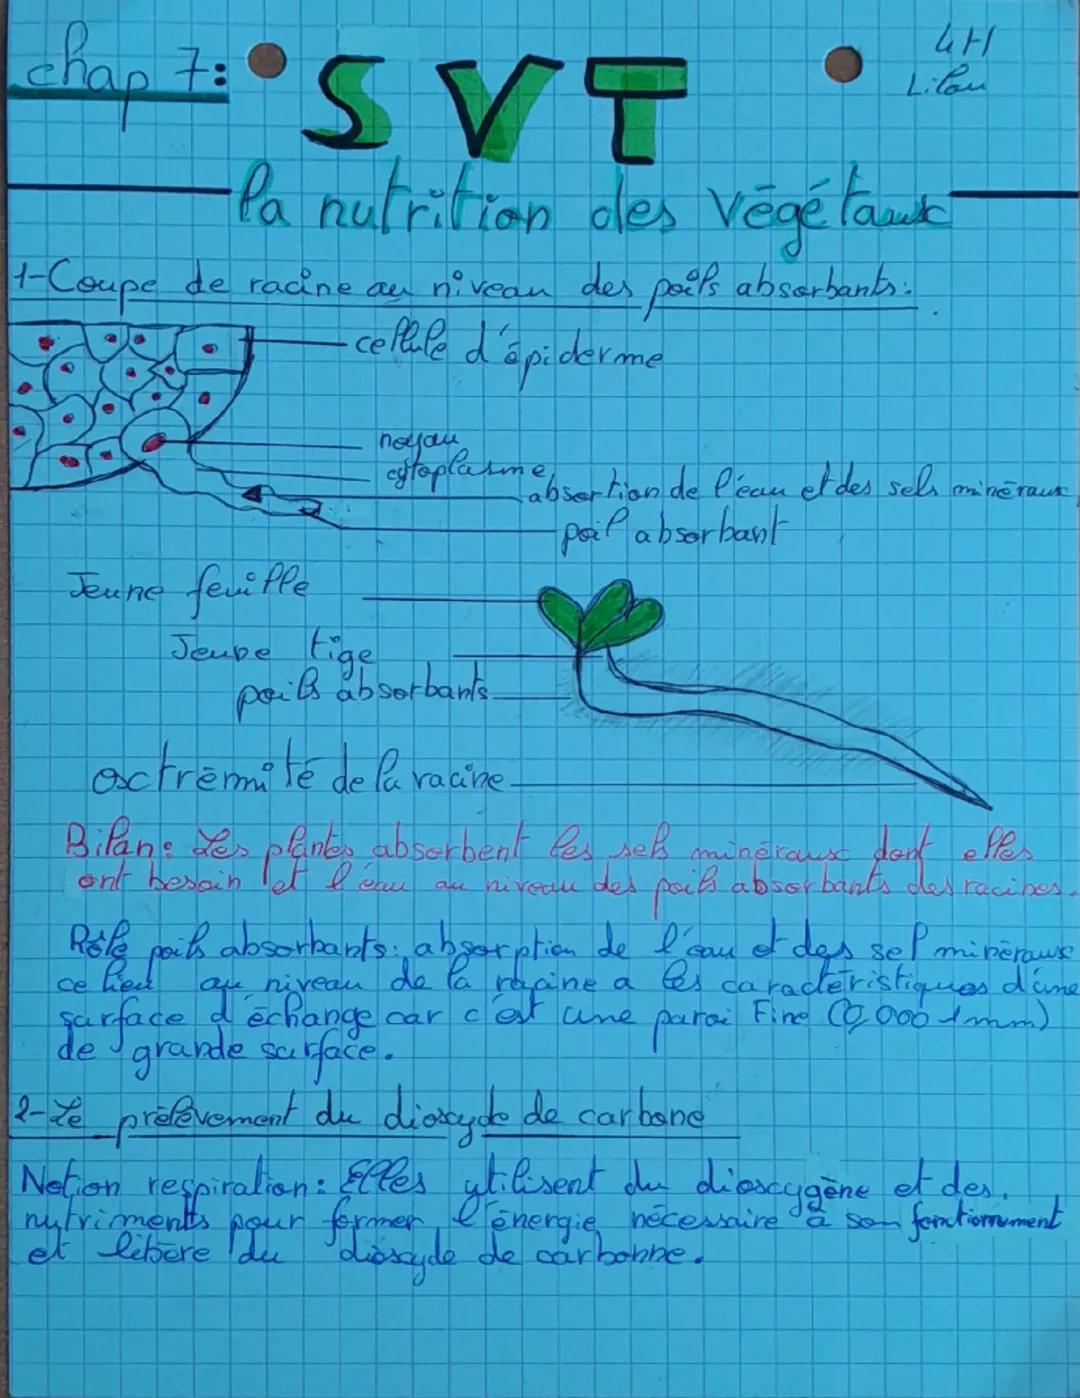 chap 7: SVT
4H
Lilou
la nutrition des végétaux
1-Coupe de racine au niveau des poils absorbants:
cellule d'épiderme
noyau
cytoplasme
absortion de l'eau et des sels minéraux
poil absorbant
Jeune feuille
Jeune tige
poils absorbants
extrémité de la racine
Bilan: Les plantes absorbent les sels minéraux dont elles
ont besoin et l'eau au niveau des poils absorbants des racines.
Rôle poils absorbants: absorption de l'eau et des sel minéraux
ce lieu au niveau de la racine a les caractéristiques d'une
surface d'échange car c'est une paroi Fine (0,0001mm)
de grande surface.
2-Le prélèvement du dioxyde de carbone
Notion respiration: Elles utilisent du dioxygène et des
nutriments pour former l'énergie nécessaire à son fonctionnement
et libère du dioxyde de carbonne.